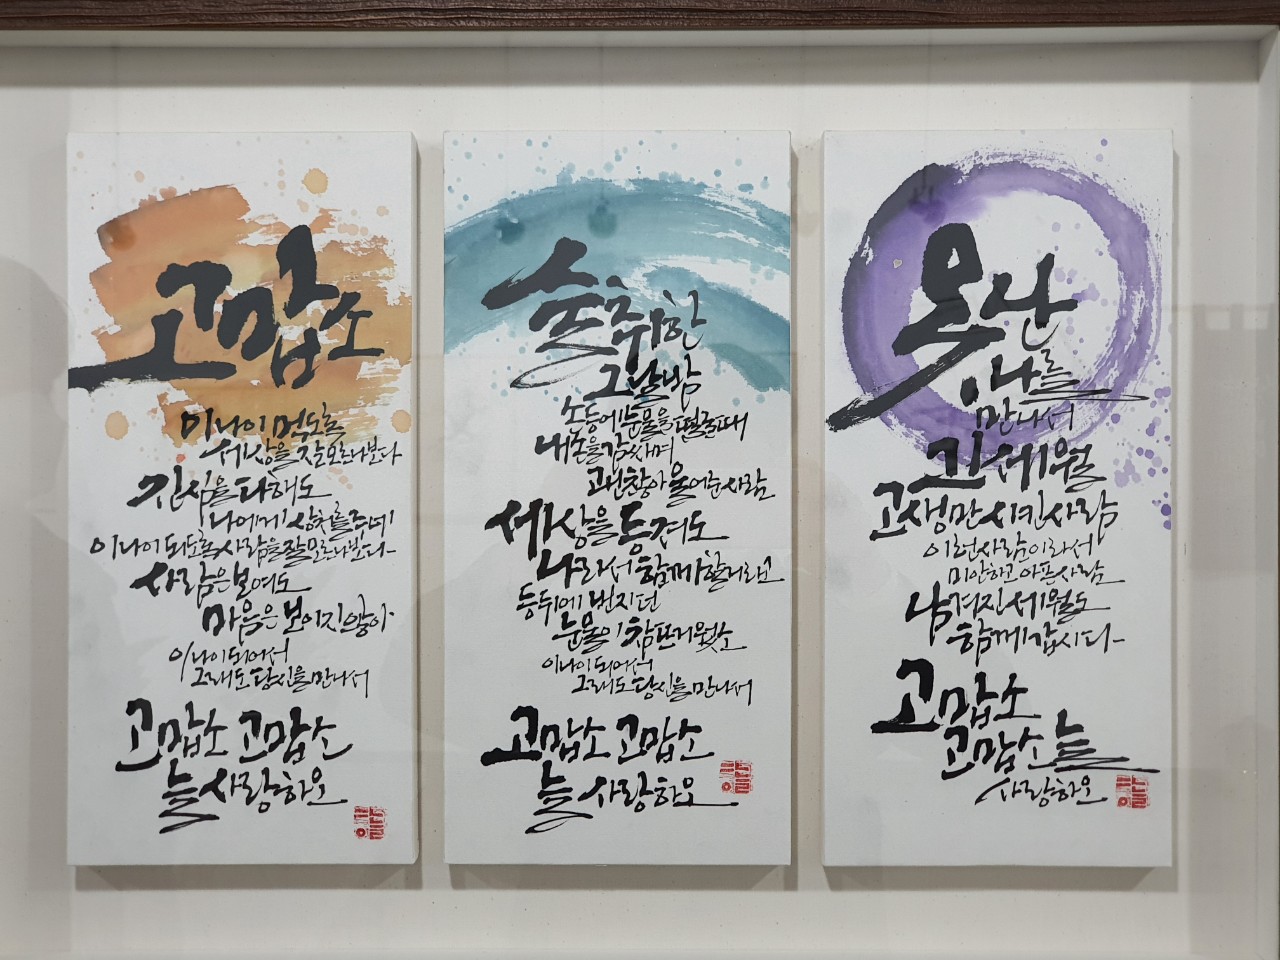 고맙소
이 나이 먹도록
세상을 잘 모르나 보다
진심을 다해도
나에게 상처를 주네
이 나이 되도록 사람을 잘 모르나 보다
사람은 보여도
마음은 보이지 않아
이 나이 되어서
그래도 당신을 만나서
고맙소 고맙소
늘 사랑하오
술 취한
그날 밤
손등에 눈물을 떨굴 때
내 손을 감싸며
괜찮아 울어준 사람
세상을 등져도
나라서 함께 할 거라고
등 뒤에 번지던
눈물이 참 뜨거웠소
이 나이 되어서
그래도 당신을 만나서
고맙소 고맙소
늘 사랑하오
못난
나를
만나서
긴 세월
고생만 시킨 사람
이런 사람이라서
미안하고 아픈 사람
남겨진 세월도
함께 갑시다
고맙소
고맙소 늘
사랑하오